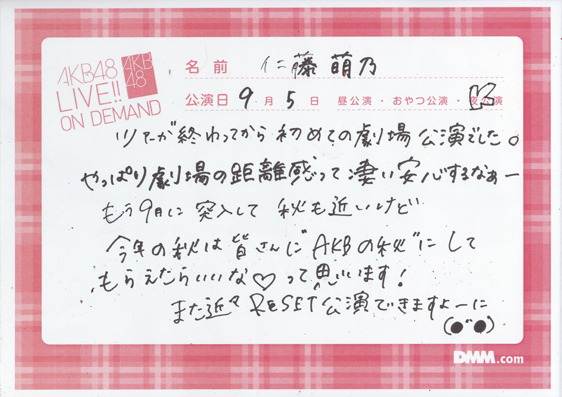 AKB48
LIVE!!
ON DEMAND
AKB
48
名前 仁藤萌乃
公演日 9月5日 昼公演・おやつ公演・夜公演
ツアーが終わってから初めての劇場公演でした。
やっぱり劇場の距離感って凄い安心するなぁー
もう9月に突入して 秋も近いけど
今年の秋は皆さんに"AKBの秋"にして
もらえたらいいな♡って思います!
また近々 ReSET公演できますよーに
DMM.com